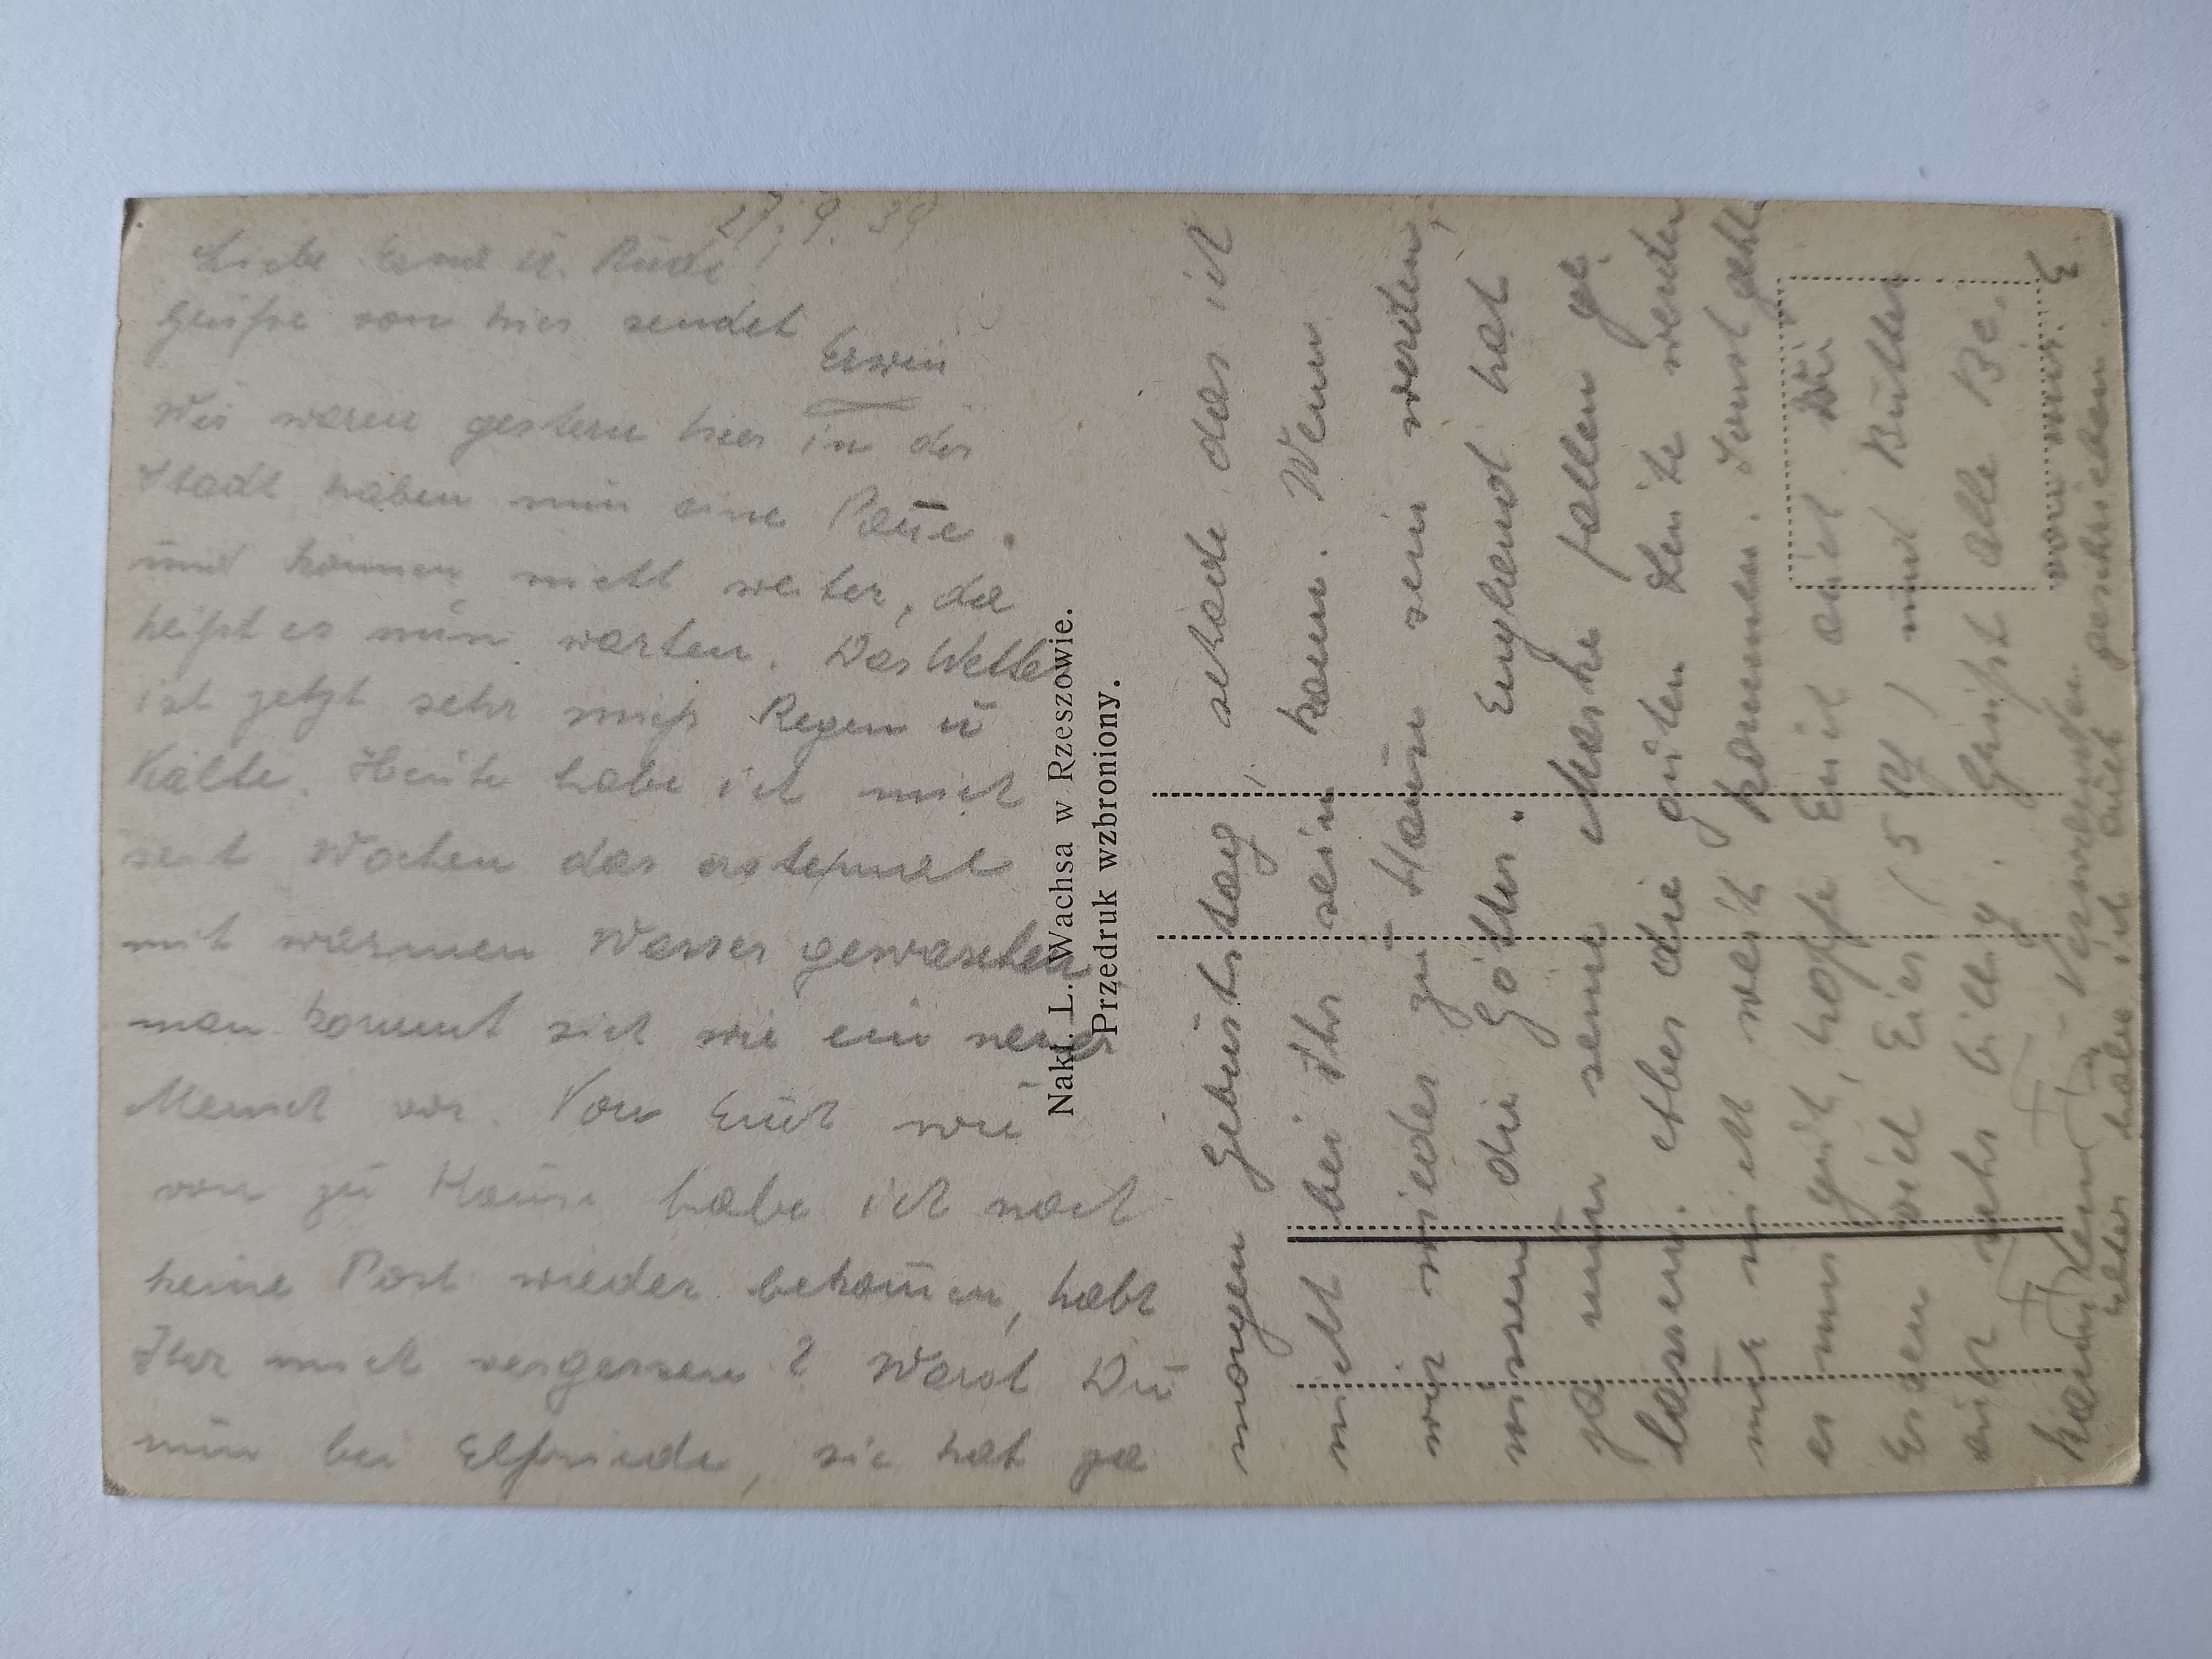 27.9.39
Liebe Erna u. Rudi!
Grüße von hier sendet
Erwin
Wir waren gestern hier in der
Stadt haben nun eine Pause.
und können nicht weiter, da
heißt es nun warten. Das Wetter
ist jetzt sehr mieß Regen u
Kälte. Heute habe ich mich
seit Wochen das erstemal
mit warmen Wasser gewaschen
man kommt sich wie ein neuer
Mensch vor. Von Euch wie
von zu Hause habe ich noch
keine Post wieder bekommen, habt
Ihr mich vergessen? Warst Du
nun bei Elfriede, sie hat ja
Nakł. L. Wachsa w Rzeszowie.
Przedruk wzbroniony.
morgen Geburtstag, schade das ich
nicht bei Ihr sein kann. Wenn
wir wieder zu Hause sein werden,
wissen die Götter. England hat
ja nun seine Maske fallen ge
lassen. Aber die guten Leute werden
nur nicht weit kommen. Sonst geht
es uns gut, hoffe Euch auch. Wir
Essen viel Eier (5 ) und Butter
auch sehr billig. Grüßt alle Be.
kannten u. Verwandten von mir. E
habe ich auch geschrieben.